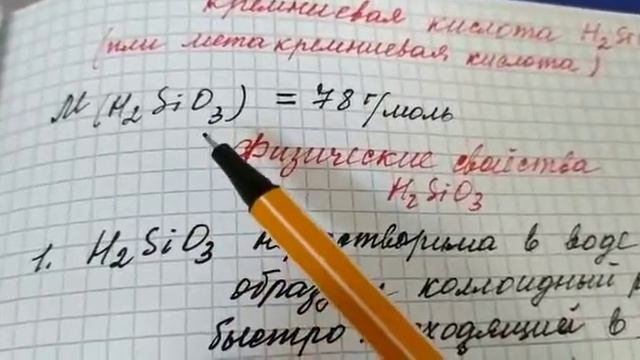 кремниевая кислота H₂Si
(или метакремниевая кислота)
M(H₂SiO₃) = 78 г/моль
Физические свойства
H₂SiO₃
1. H₂SiO₃ в воде
коллоидный
быстро в